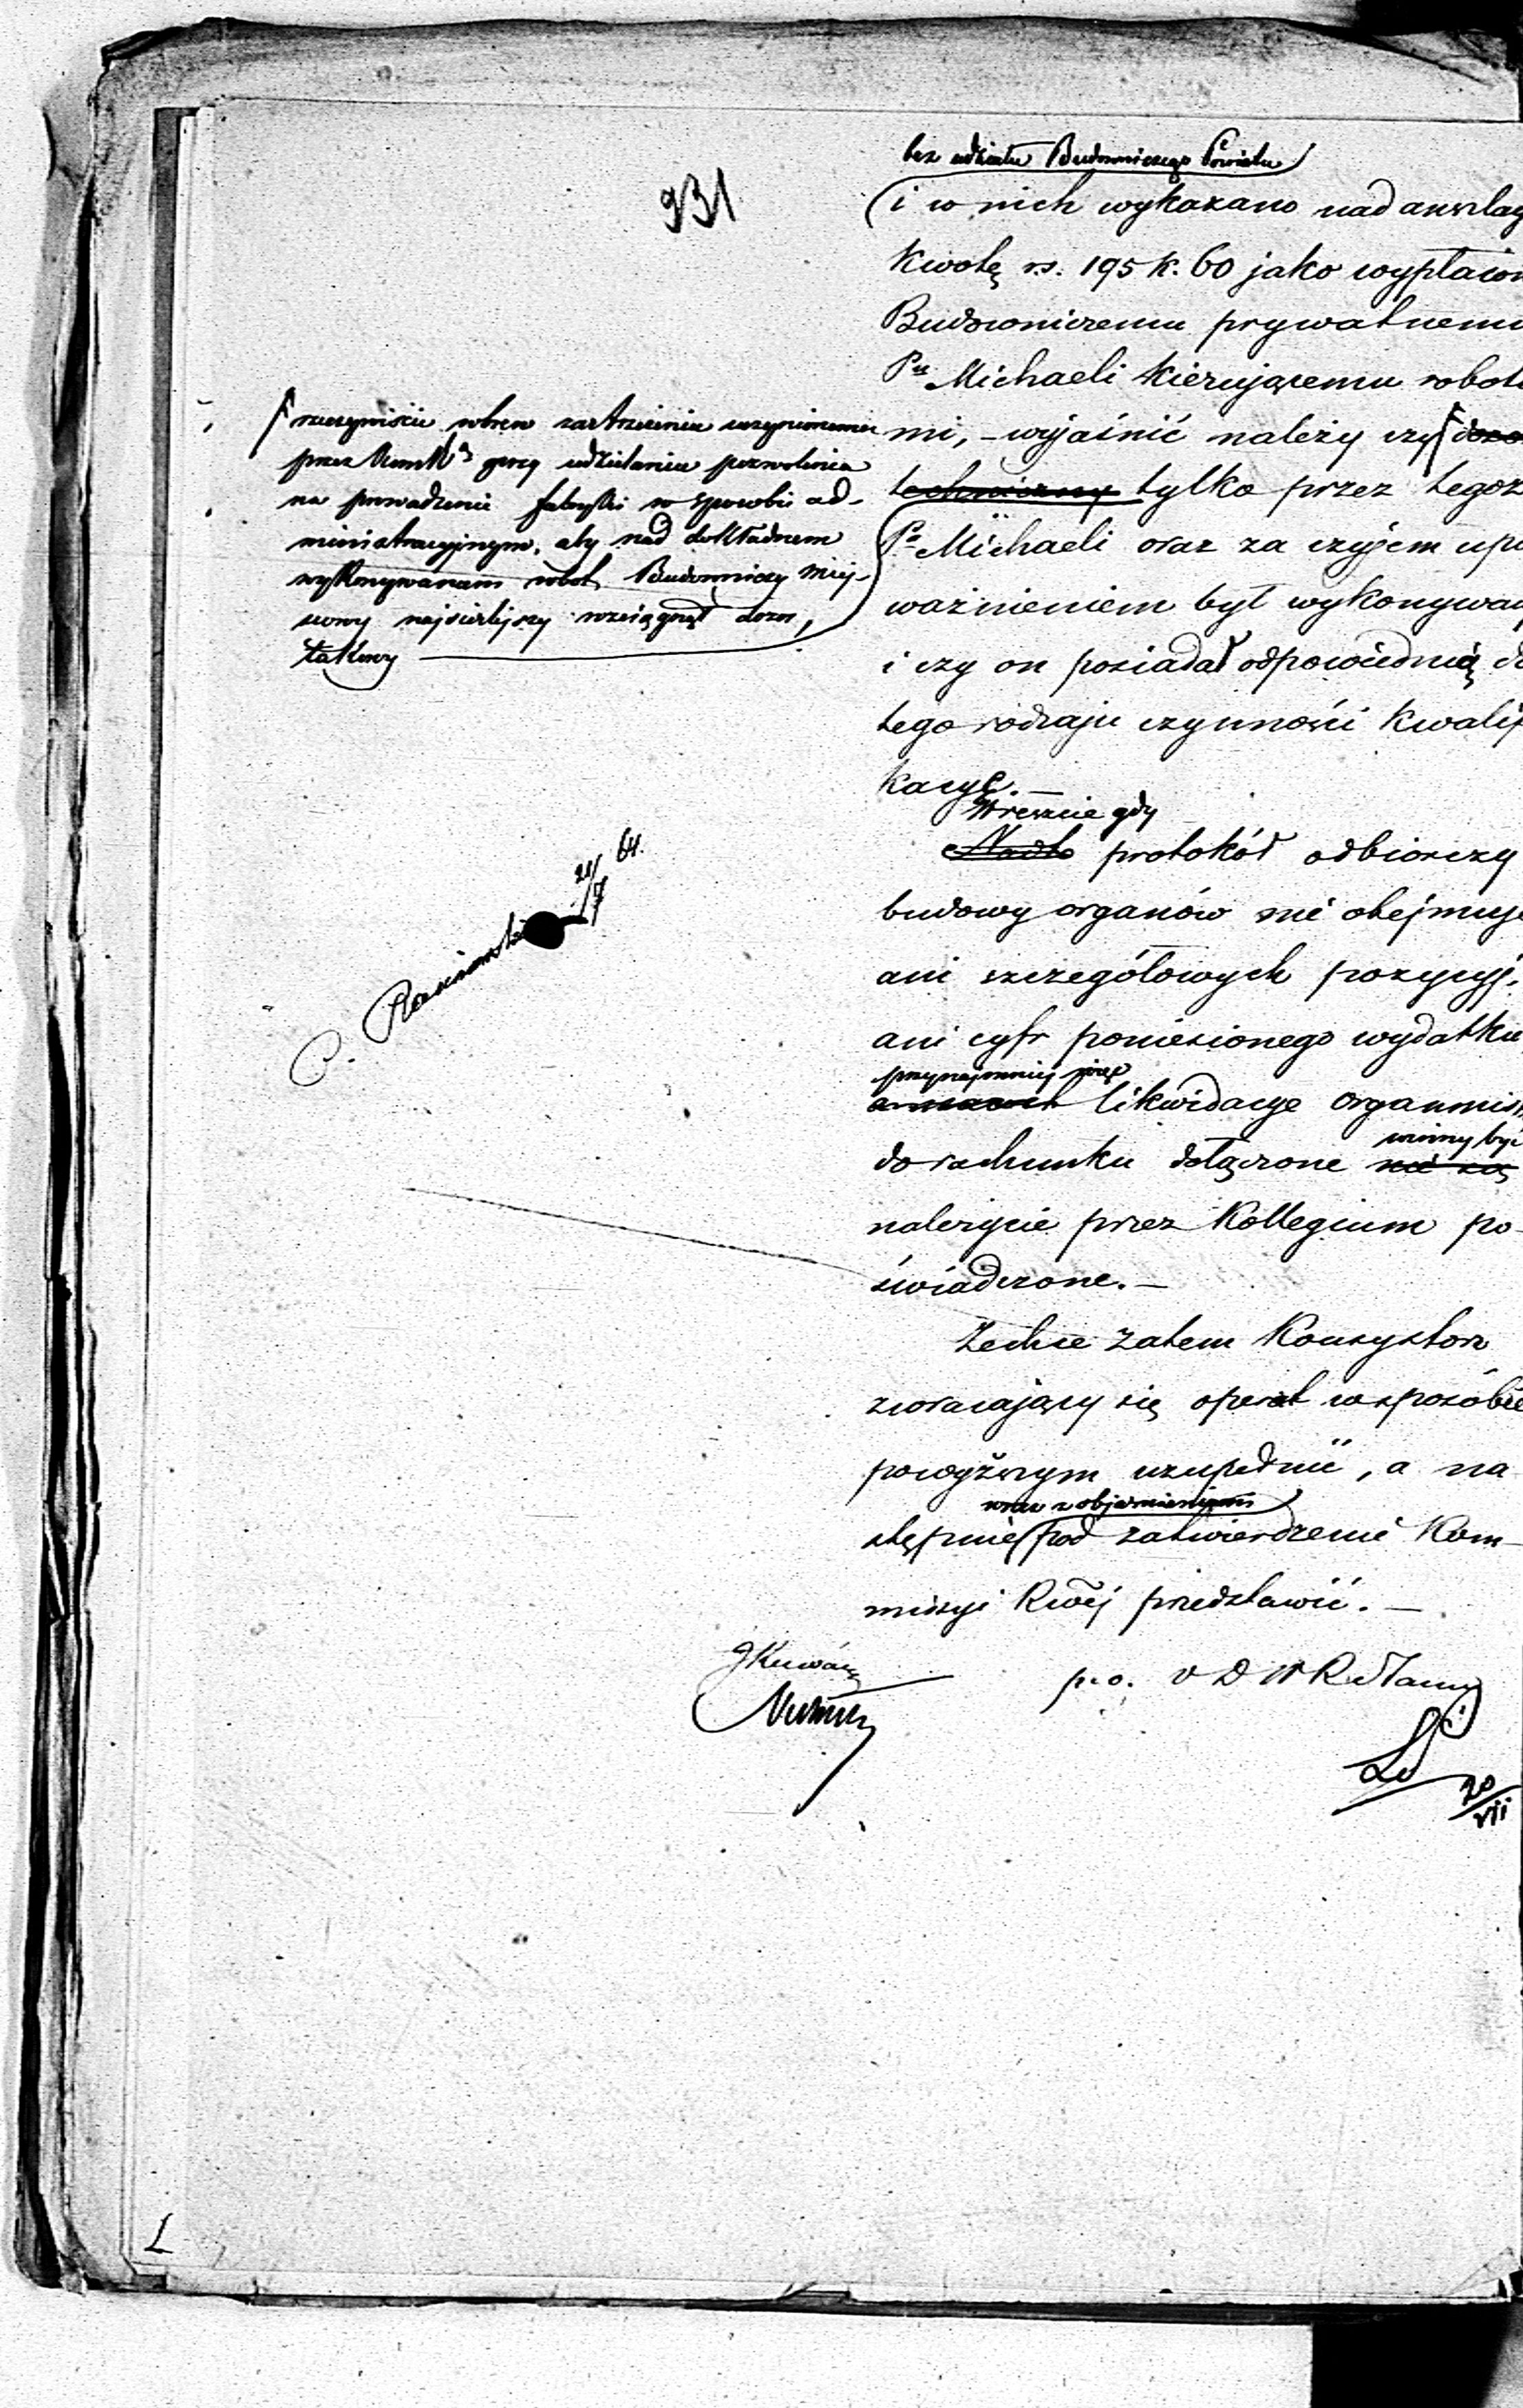 931
bez udziału Budowniczego Powiatu
i w nich wykazano nad anszlag
Kwotę rs. 195 k. 60 jako wypłacon
Budowniczemu prywatnemu
Pu Michaeli kierującemu robota
mi, – wyjaśnić należy czy dozo
techniczny tylko przez tegoż
Pa Michaeli oraz za czyjem upo
ważnieniem był wykonywany
i czy on posiadał odpowiednią do
tego rodzaju czynności kwalifi
kacyę. –
rzeczywiście wbrew zastrzeżeniu uczynionemu
przez przy udzielaniu pozwolenia
na prowadzenie fabryki w sposobie ad-
ministracyjnym, aby nad dokładnem
wykonywaniem robót Budowniczy miej-
scowy najściślejszy rozciągnął dozór,
takowy
Wreszcie gdy
Nadto protokół odbiorczy
budowy organów nie obejmuje
ani szczegółowych pozycyj,
ani cyfr poniesionego wydatku,
przynajmniej więc
likwidacye organmis
do rachunku dołączone nie są
winny być
należycie przez Kollegium po-
świadczone. –
Zechce zatem Konsystorz
zwracający się operat w sposobie
powyższym uzupełnić, a na
wraz z objaśnieniem
stępnie pod zatwierdzenie Kom-
missyi Rwéj przedstawić. –
p.o. D W R
20/VII
21/7 64.
L